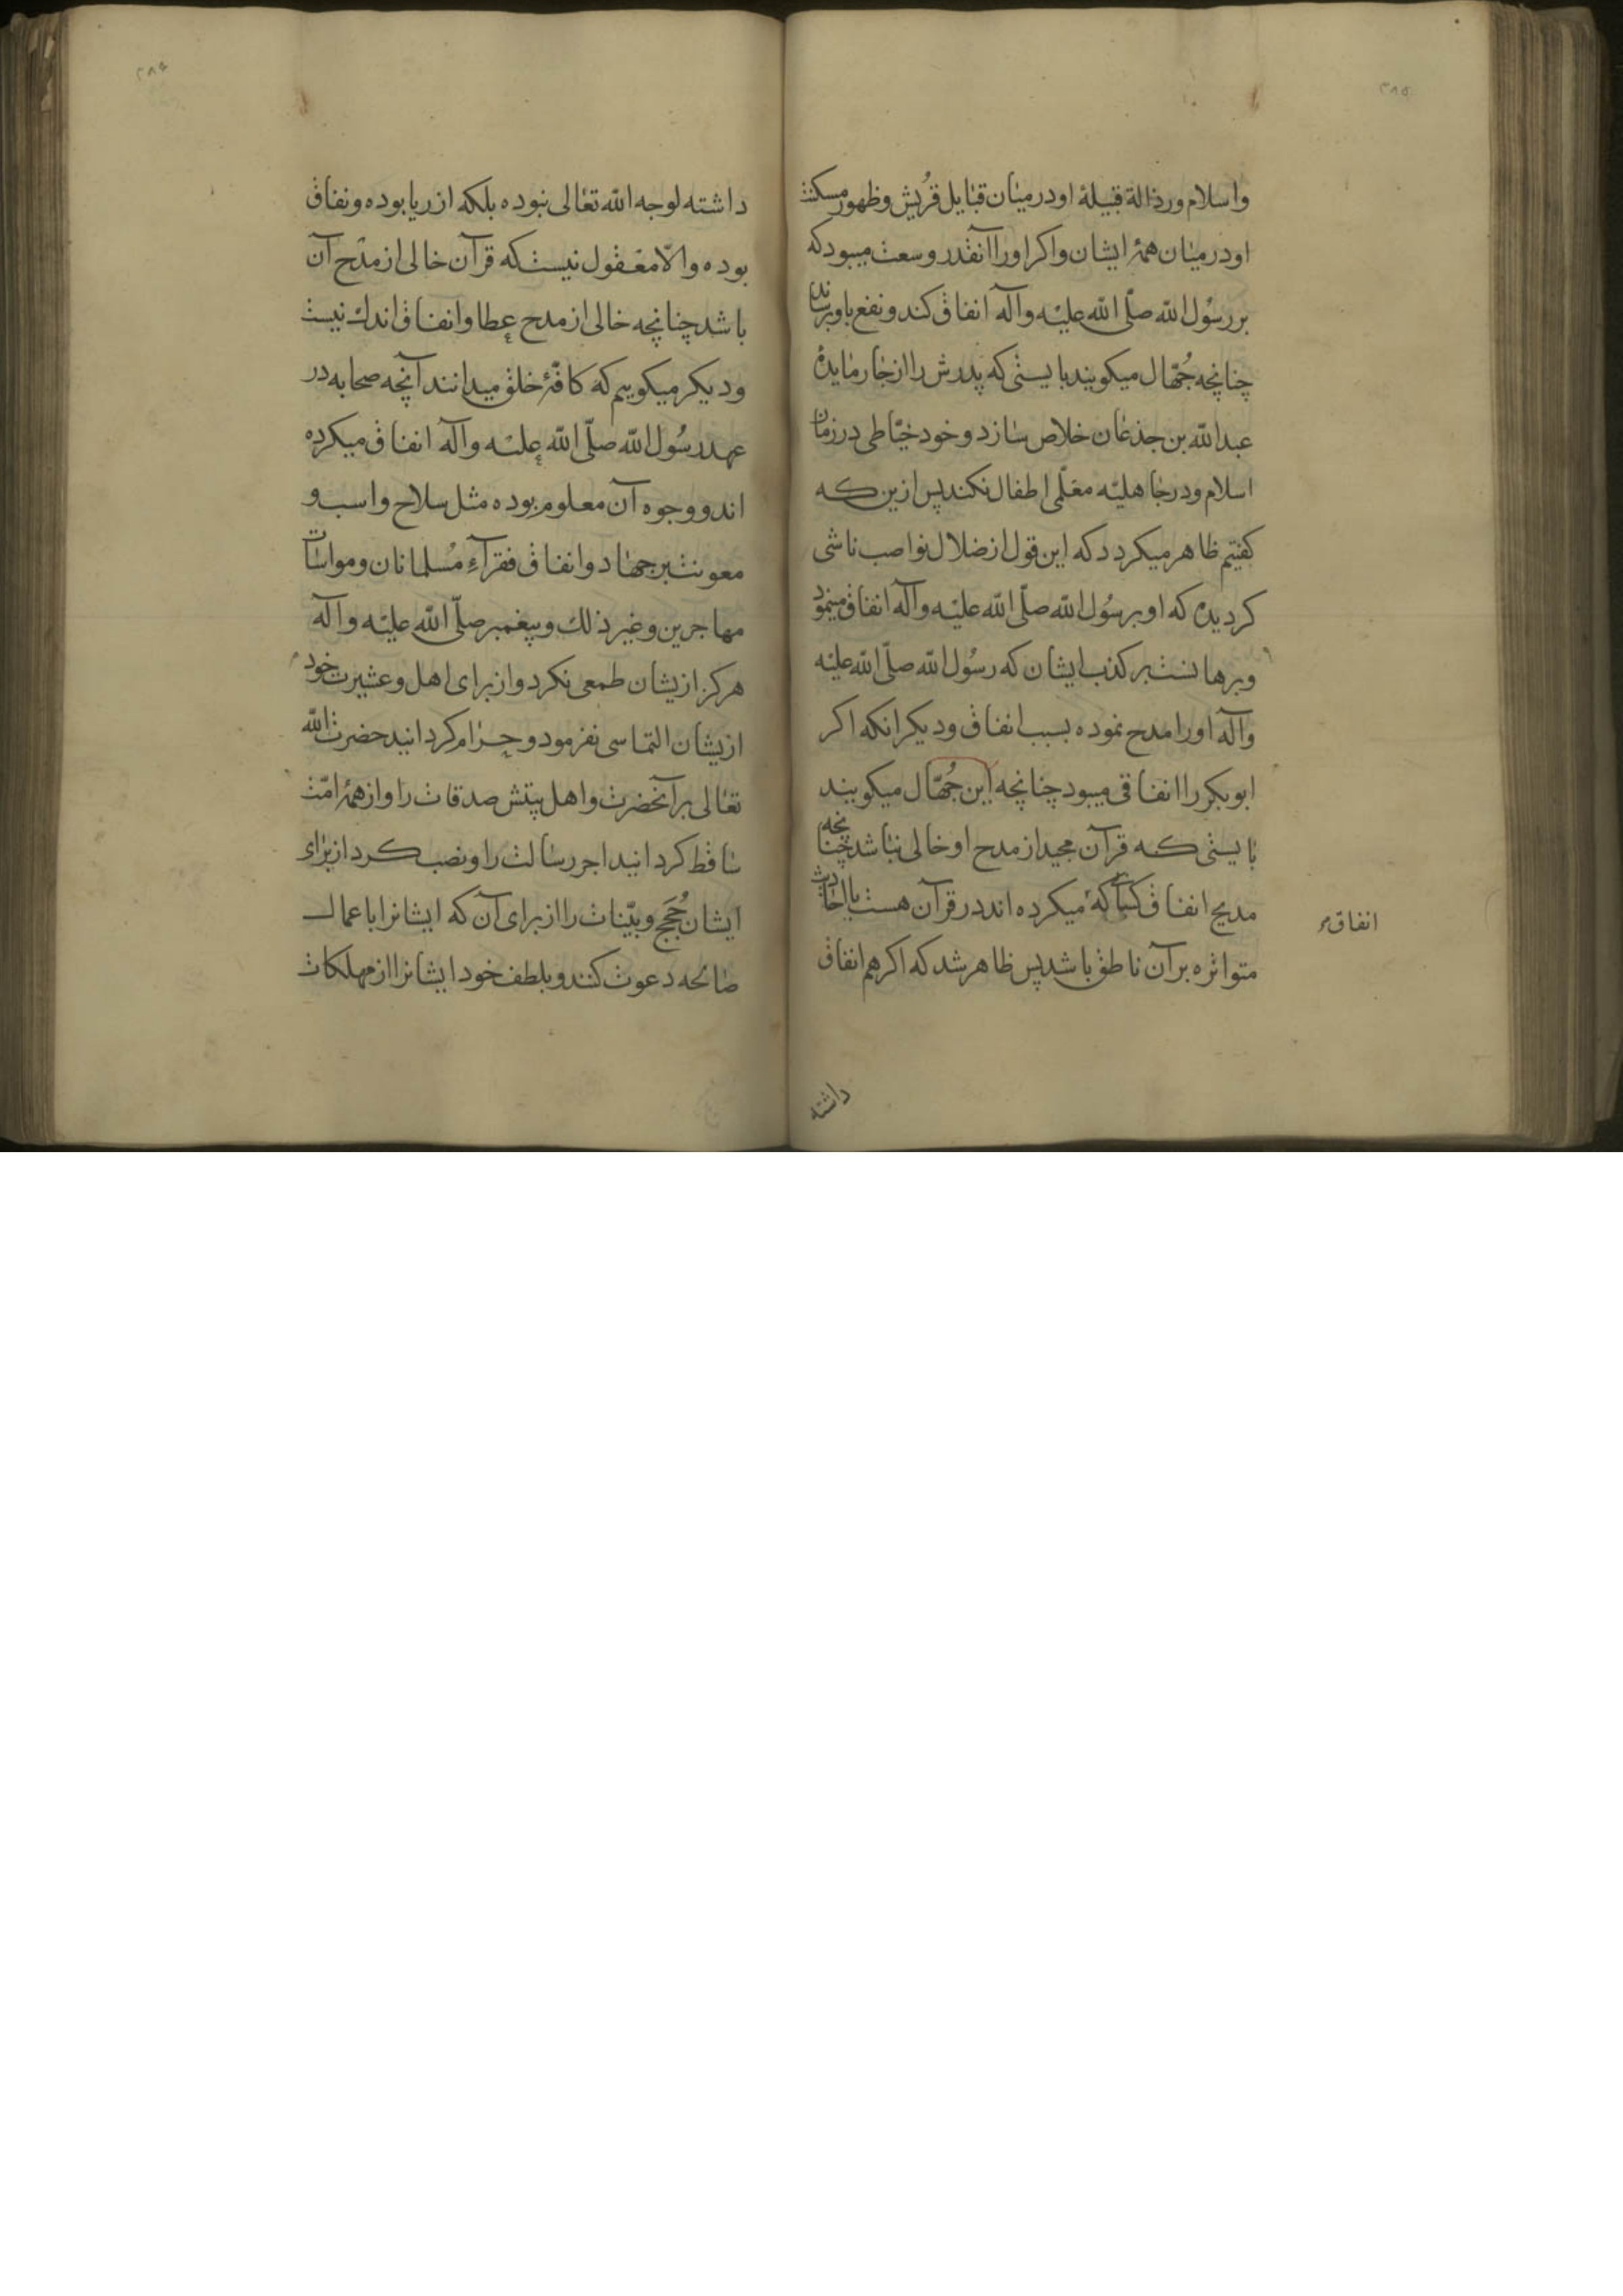 ۲۸۵
واسلام ورذالة قبیلۀ او در میان قبایل قُریش وظهور مسکنت
او در میان همۀ ایشان واکر او را آنقدر وسعت میبود که
بر رسُول الله صلّی الله علیه وآله انفاق کند ونفع باو برساند
چنانچه جُهّال میکویند بایستی که پدرش را از جار مایدۀ
عبد الله بن جذعان خلاص سازد وخود خیّاطی در زمان
اسلام ودر جاهلیّه معلّمی اطفال نکند پس ازین که
کفتیم ظاهر میکردد که این قول از ضلال نواصب ناشی
کردیده که او بر رسُول الله صلّی الله علیه وآله انفاق مینمود
وبرهانست بر کذب ایشان که رسُول الله صلّی الله علیه
وآله او را مدح نموده بسبب انفاق ودیکر انکه اکر
ابوبکر را انفاقی میبود چنانچه این جُهّال میکویند
بایستی که قرآن مجید از مدح او خالی نباشد چنانچه
مدیح انفاق کسانی که میکرده اند در قرآن هست یا احادیث
انفاق
متواتره بر آن ناطق باشد پس ظاهر شد که اکر هم انفاق
داشته
۲۸۶
داشته لوجه الله تعالی نبوده بلکه از ریا بوده ونفاق
بوده والّا معقول نیست که قرآن خالی از مدح آن
باشد چنانچه خالی از مدح عطا وانفاق اندك نیست
ودیکر میکوییم که کافّۀ خلق میدانند آنچه صحابه در
عهد رسُول الله صلّی الله علیه وآله انفاق میکرده
اند ووجوه آن معلوم بوده مثل سلاح واسب و
معونت بر جهاد وانفاق فقرآءِ مُسلمانان ومواسات
مهاجرین وغیر ذلك وپیغمبر صلّی الله علیه وآله
هرکز ازیشان طمعی نکرد واز برای اهل وعشیرت خود
ازیشان التماسی نفرمود وحرام کردانید حضرت الله
تعالی بر آنحضرت واهل بیتش صدقات را واز همۀ امّت
ساقط کردانید اجر رسالت را ونصب کرد از برای
ایشان حُجَج وبیّنات را از برای آن که ایشانرا باعمال
صالحه دعوت کنند وبلطف خود ایشانرا از مهلکات